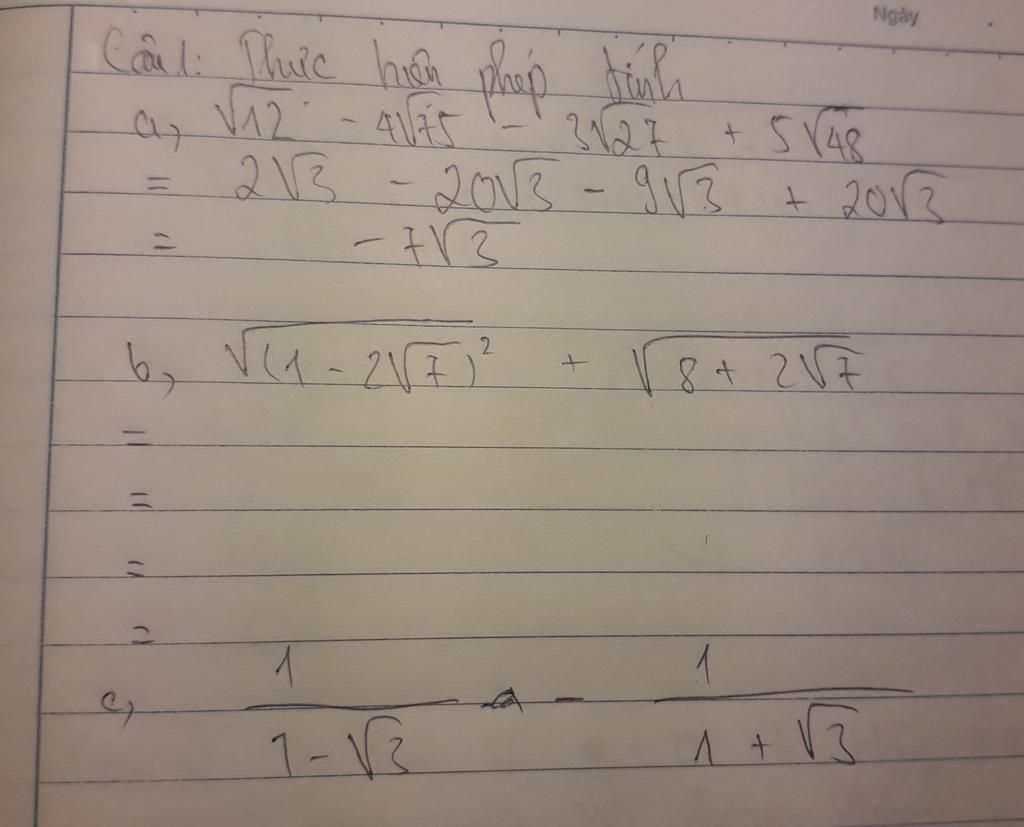 Ngày
Câu 1: Thực hiện phép tính
a, √12 - 4√75 - 3√27 + 5√48
= 2√3 - 20√3 - 9√3 + 20√3
= -7√3
b, √(1 - 2√7)² + √8 + 2√7
=
=
=
=
c, 1/(1 - √3) - 1/(1 + √3)